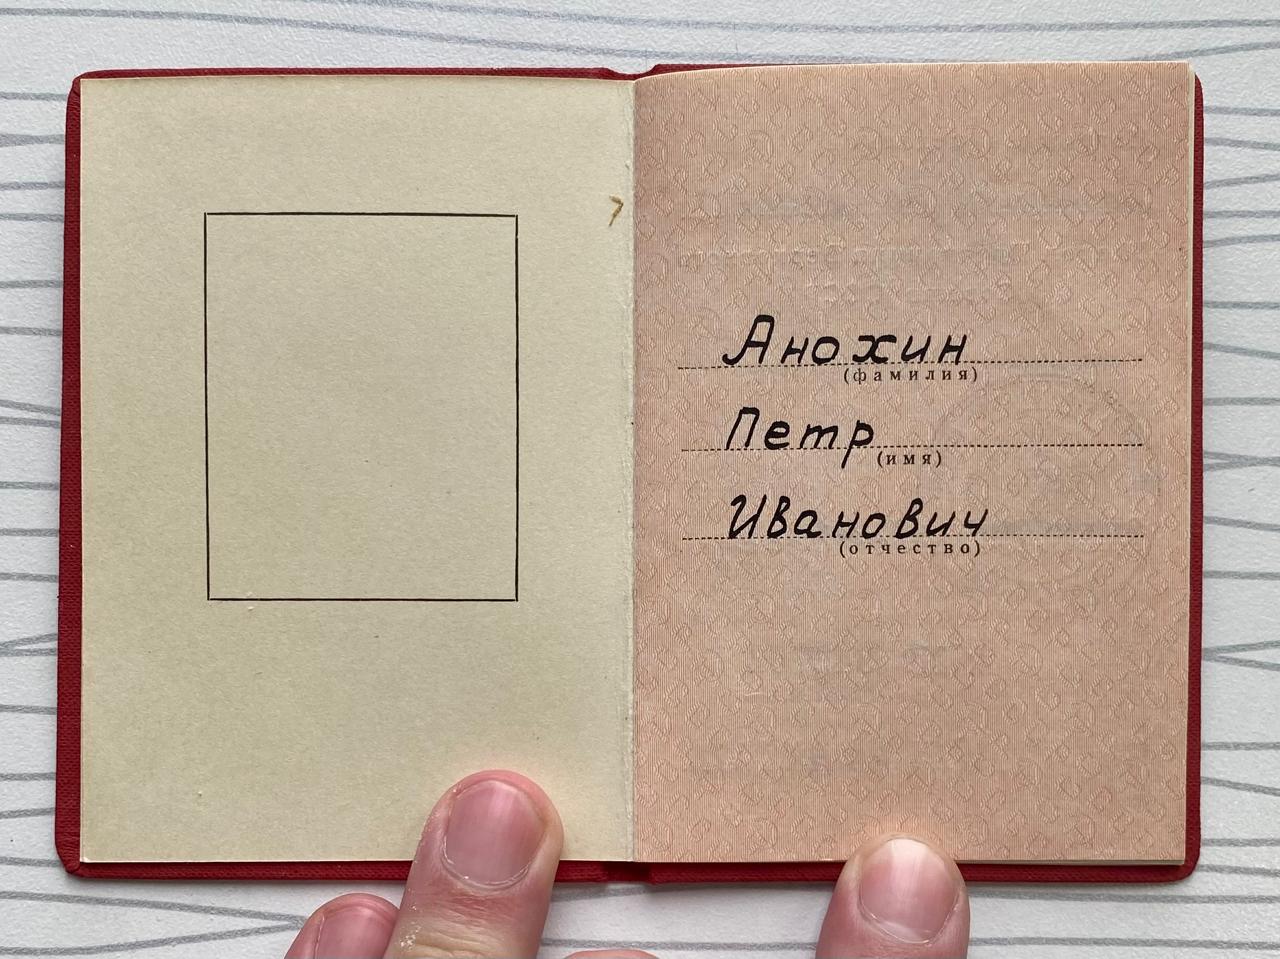 Анохин
(фамилия)
Петр
(имя)
Иванович
(отчество)